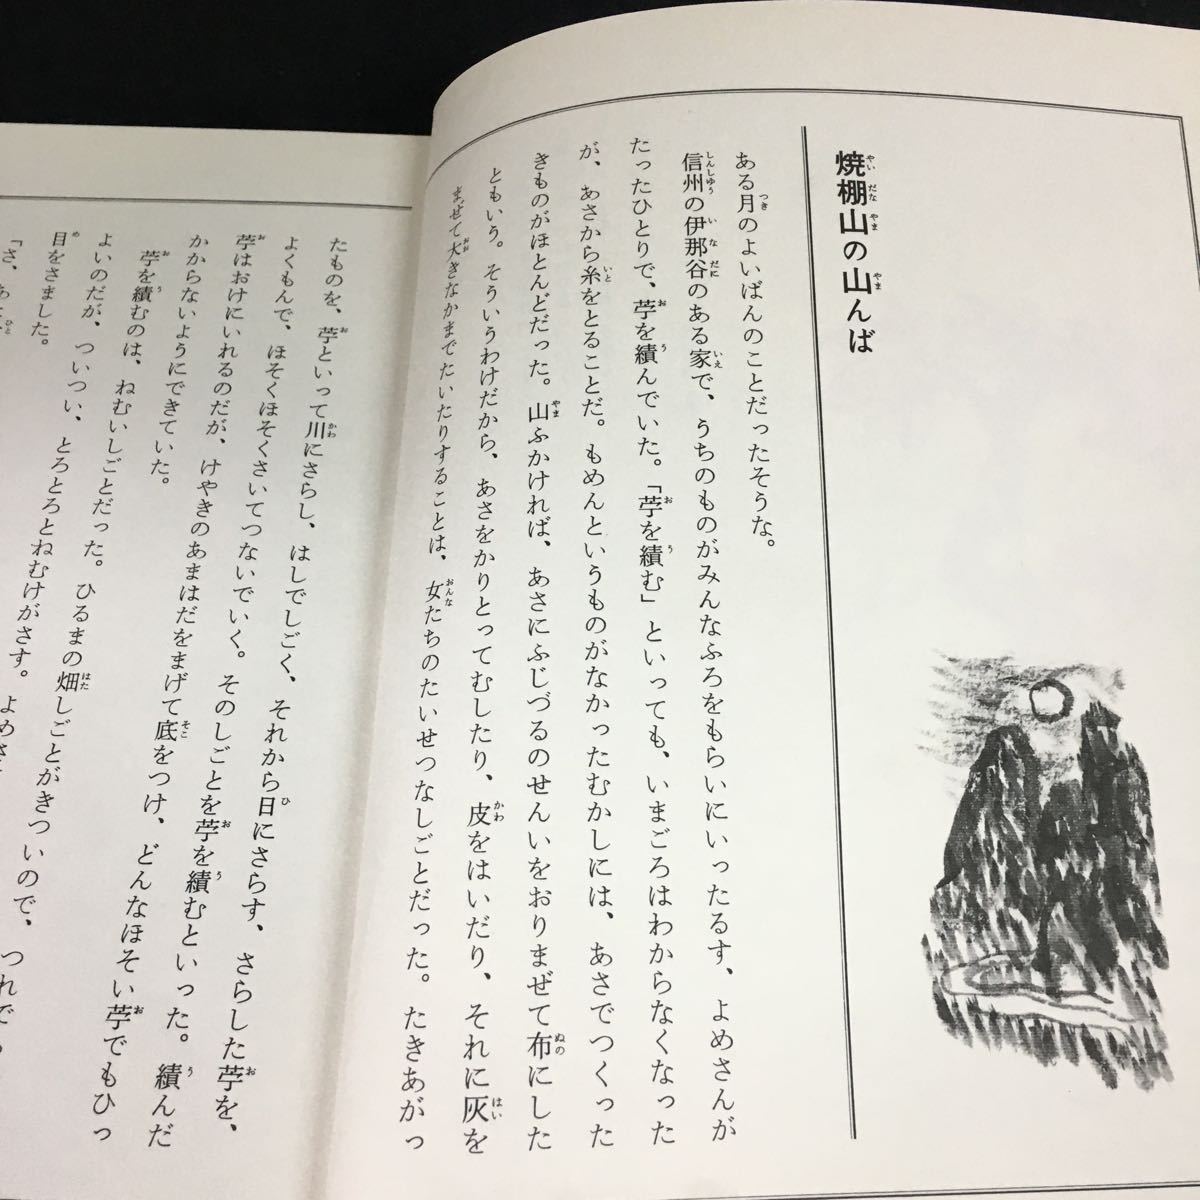 焼棚山の山んば
ある月のよいばんのことだったそうな。
信州の伊那谷のある家で、うちのものがみんなふろをもらいにいったるす、よめさんが
たったひとりで、苧を績んでいた。「苧を績む」といっても、いまごろはわからなくなった
が、あさから糸をとることだ。もめんというものがなかったむかしには、あさでつくった
きものがほとんどだった。山ふかければ、あさにふじづるのせんいをおりまぜて布にした
ともいう。そういうわけだから、あさをかりとってむしたり、皮をはいだり、それに灰を
まぜて大きなかまでたいたりすることは、女たちのたいせつなしごとだった。たきあがっ
たものを、苧といって川にさらし、はしでしごく、それから日にさらす、さらした苧を、
よくもんで、ほそくほそくさいてつないでいく。そのしごとを苧を績むといった。績んだ
苧はおけにいれるのだが、けやきのあまはだをまげて底をつけ、どんなほそい苧でもひっ
かからないようにできていた。
苧を績むのは、ねむいしごとだった。ひるまの畑しごとがきついので、つれで
よいのだが、ついつい、とろとろとねむけがさす。よめさ
目をさました。
「さ、